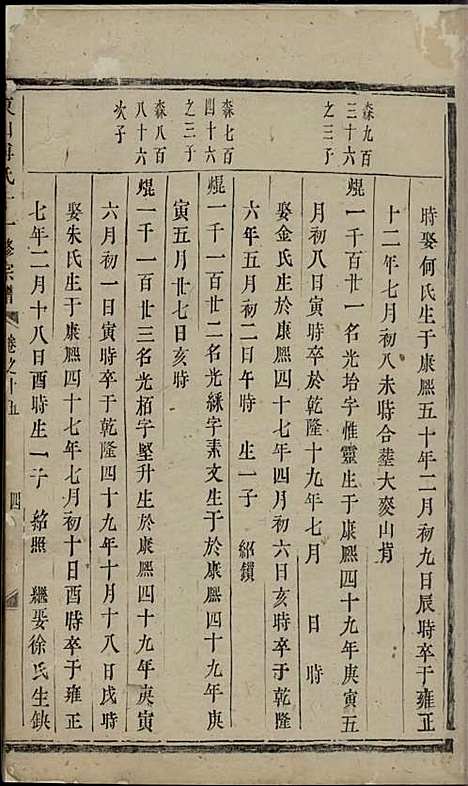 時娶何氏生于康熙五十年二月初九日辰時卒于雍正
十二年七月初八未時合葬大麥山背
森九百
三十六
之三子
焜一千百廿一名光抬字惟靈生于康熙四十九年庚寅五
月初八日寅時卒於乾隆十九年七月 日 時
娶金氏生於康熙四十七年四月初六日亥時卒于乾隆
六年五月初二日午時 生一子 紹鑽
森七百
四十六
之三子
焜一千一百廿二名光綵字素文生于於康熙四十九年庚
寅五月廿七日亥時
森八百
八十六
次子
焜一千一百廿三名光栢字堅升生於康熙四十九年庚寅
六月初一日寅時卒于乾隆四十九年十月十八日戌時
娶朱氏生于康熙四十七年七月初十日酉時卒于雍正
七年二月十八日酉時生一子 紹照 繼娶徐氏生缺
氏十一修宗譜 卷之十五 四